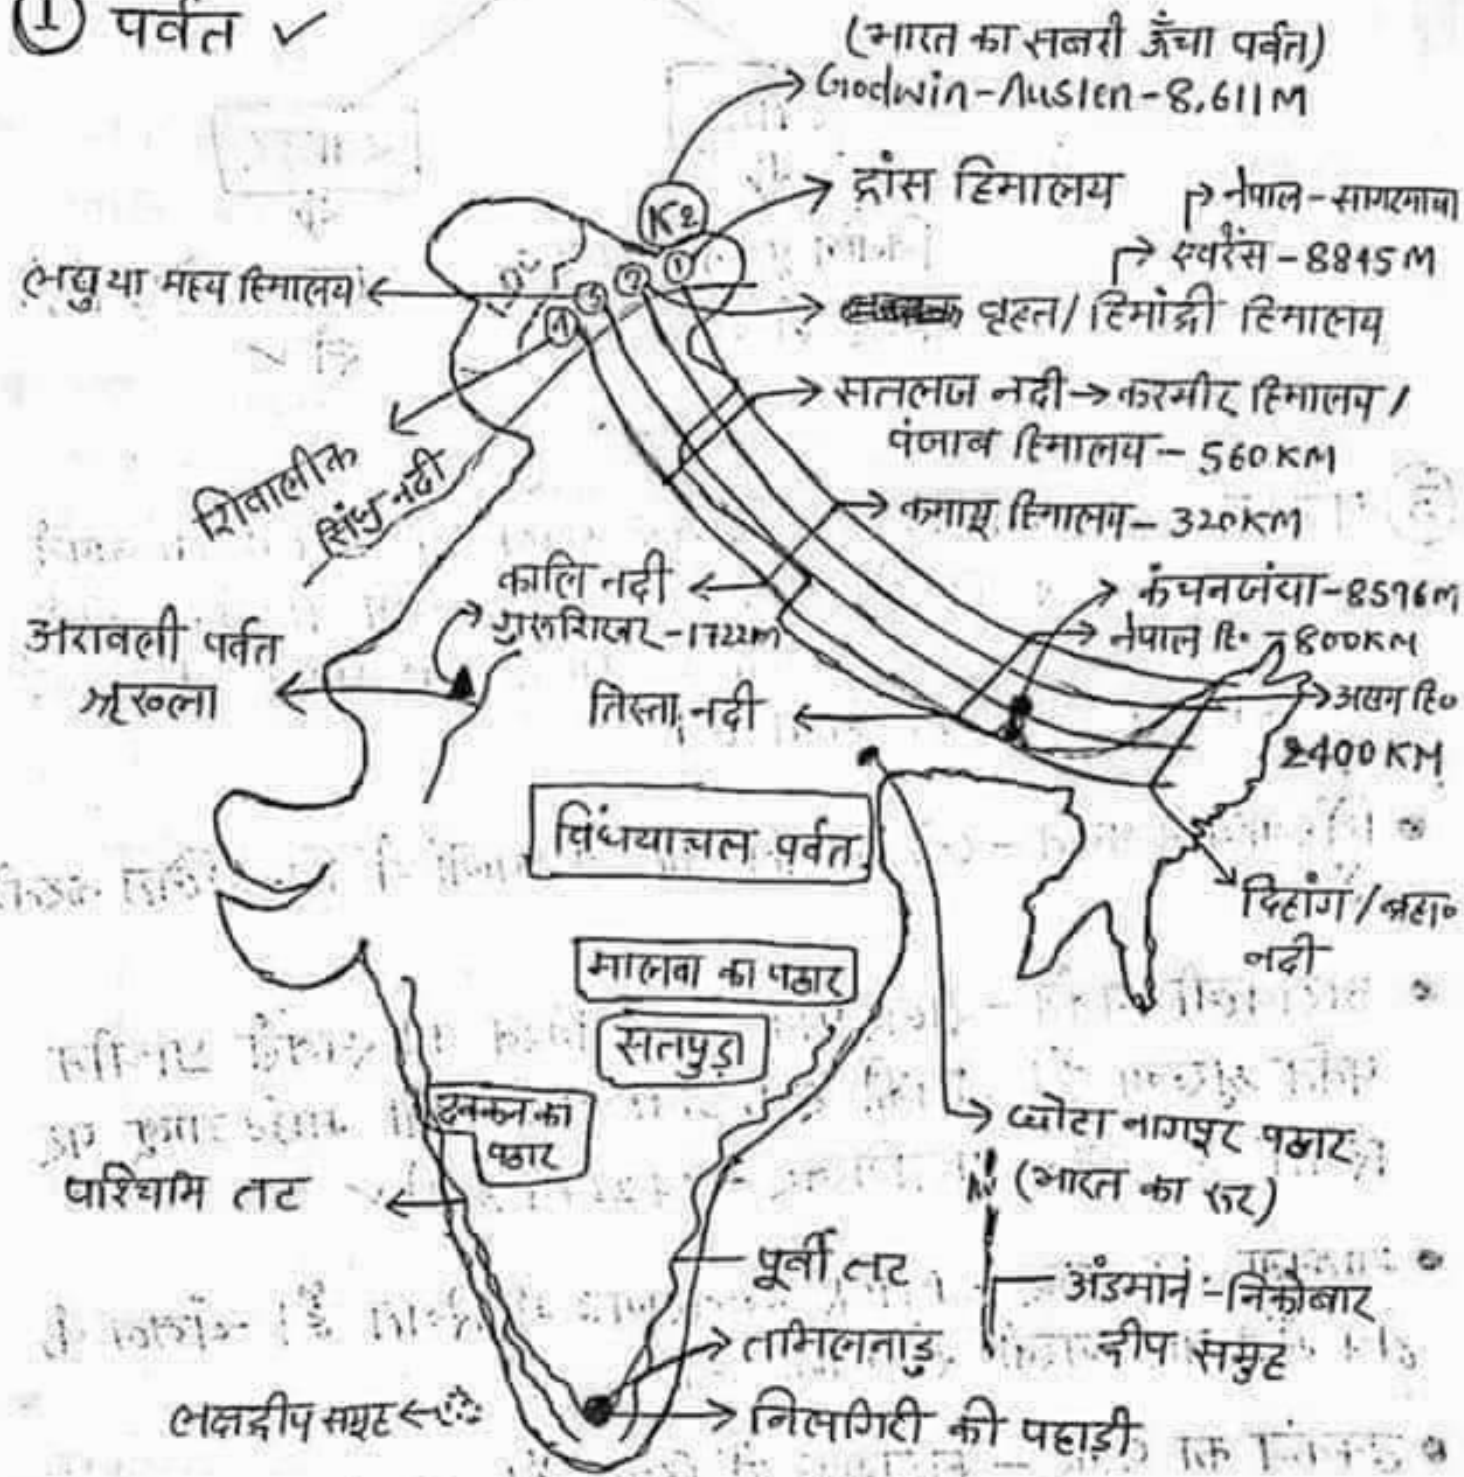 ① पर्वत ✓
(भारत का सबरी ऊँचा पर्वत)
Godwin-Auslen-8,611M
K2
ट्रांस हिमालय
नेपाल-सागरमाथा
एवरेंस-8845M
लघु या मध्य हिमालय
LOC
① ② ③ ④
वृहत/हिमांद्री हिमालय
सतलज नदी→कश्मीर हिमालय/
पंजाब हिमालय-560KM
शिवालीक
सिंधु नदी
कुमायू हिमालय-320KM
कालि नदी
कंचनजंघा-8596M
गुरुशिखर-1722M
नेपाल हि०-800KM
अरावली पर्वत
श्रृखला
तिस्ता नदी
असम हि०
2400KM
विंधयाचल पर्वत
दिहांग/ब्रहा०
नदी
मालवा का पठार
सतपुड़ा
दक्कन का
पठार
छोटा नागपुर पठार
(भारत का रूर)
पाश्चिाम तट
पूर्वी तट
अंडमान-निकोबार
द्वीप समुह
तामिलनाडु
लक्षद्वीप समूह
निलगिरी की पहाड़ी